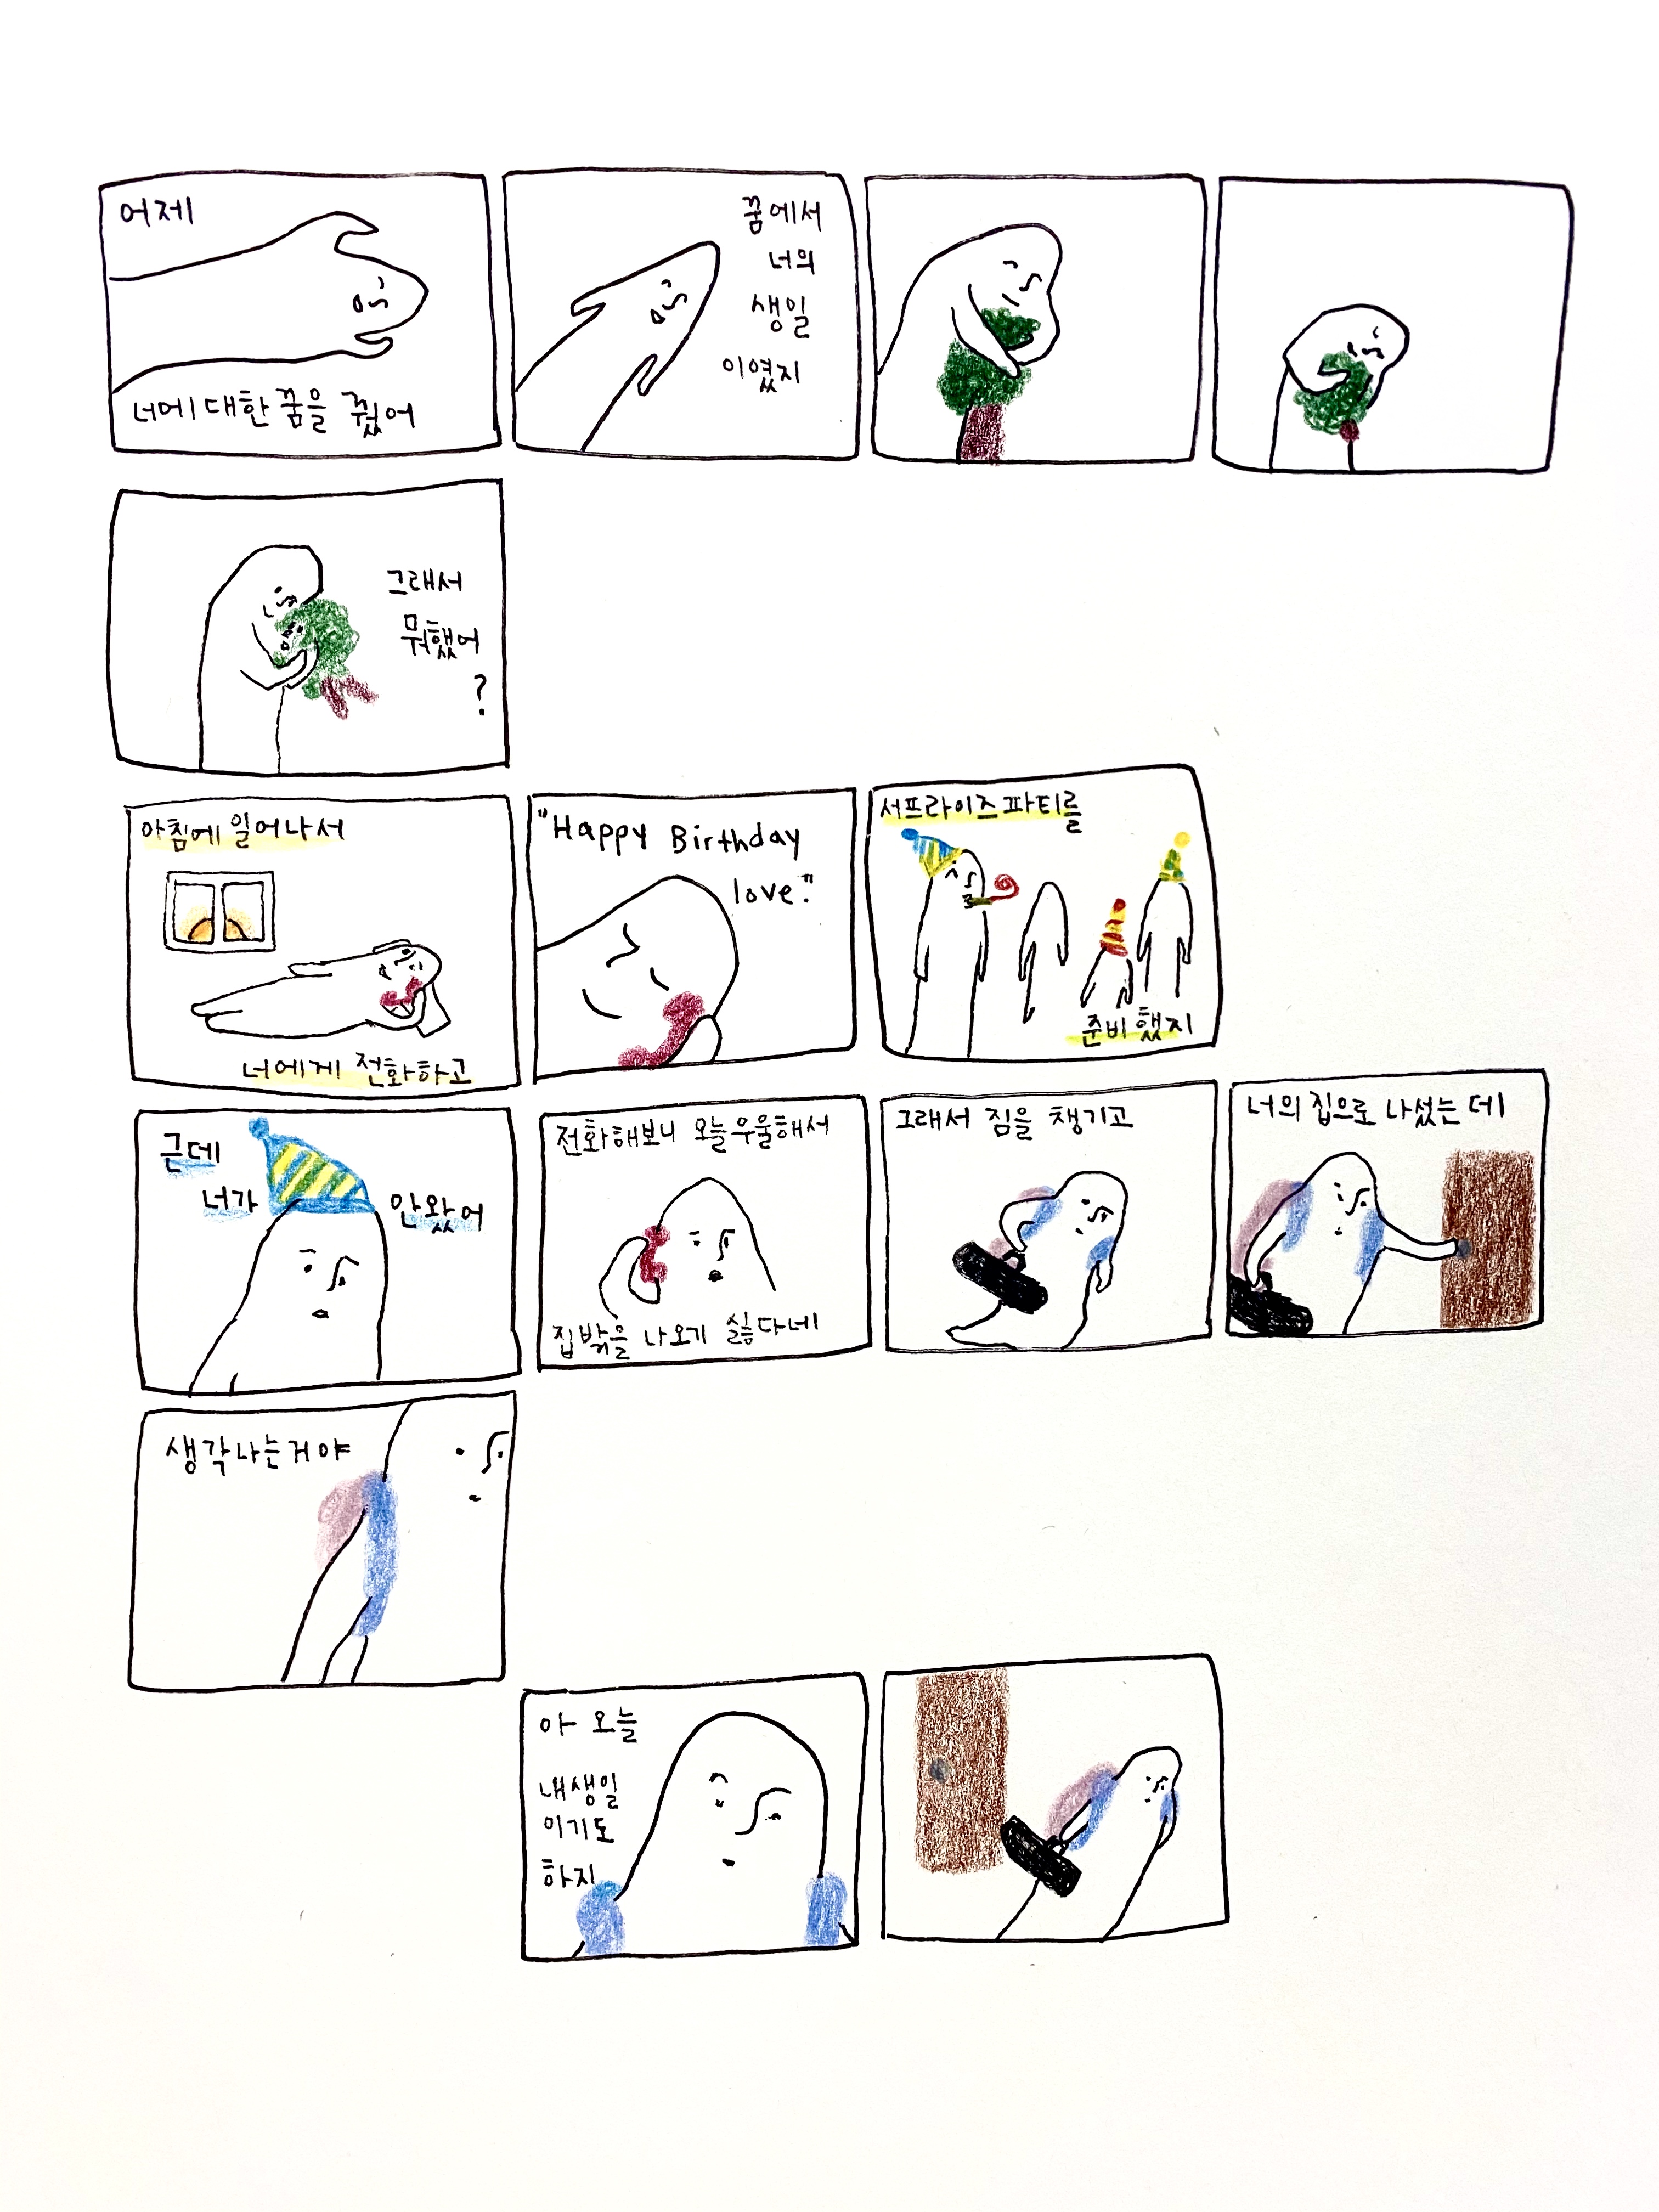 어제
너에 대한 꿈을 꿨어
꿈에서
너의
생일
이였지
그래서
뭐했어
?
아침에 일어나서
너에게 전화하고
"Happy Birthday
love."
서프라이즈 파티를
준비했지
근데
너가 안왔어
전화해보니 오늘 우울해서
집밖을 나오기 싫다네
그래서 짐을 챙기고
너의 집으로 나섰는데
생각나는거야
아 오늘
내생일
이기도
하지